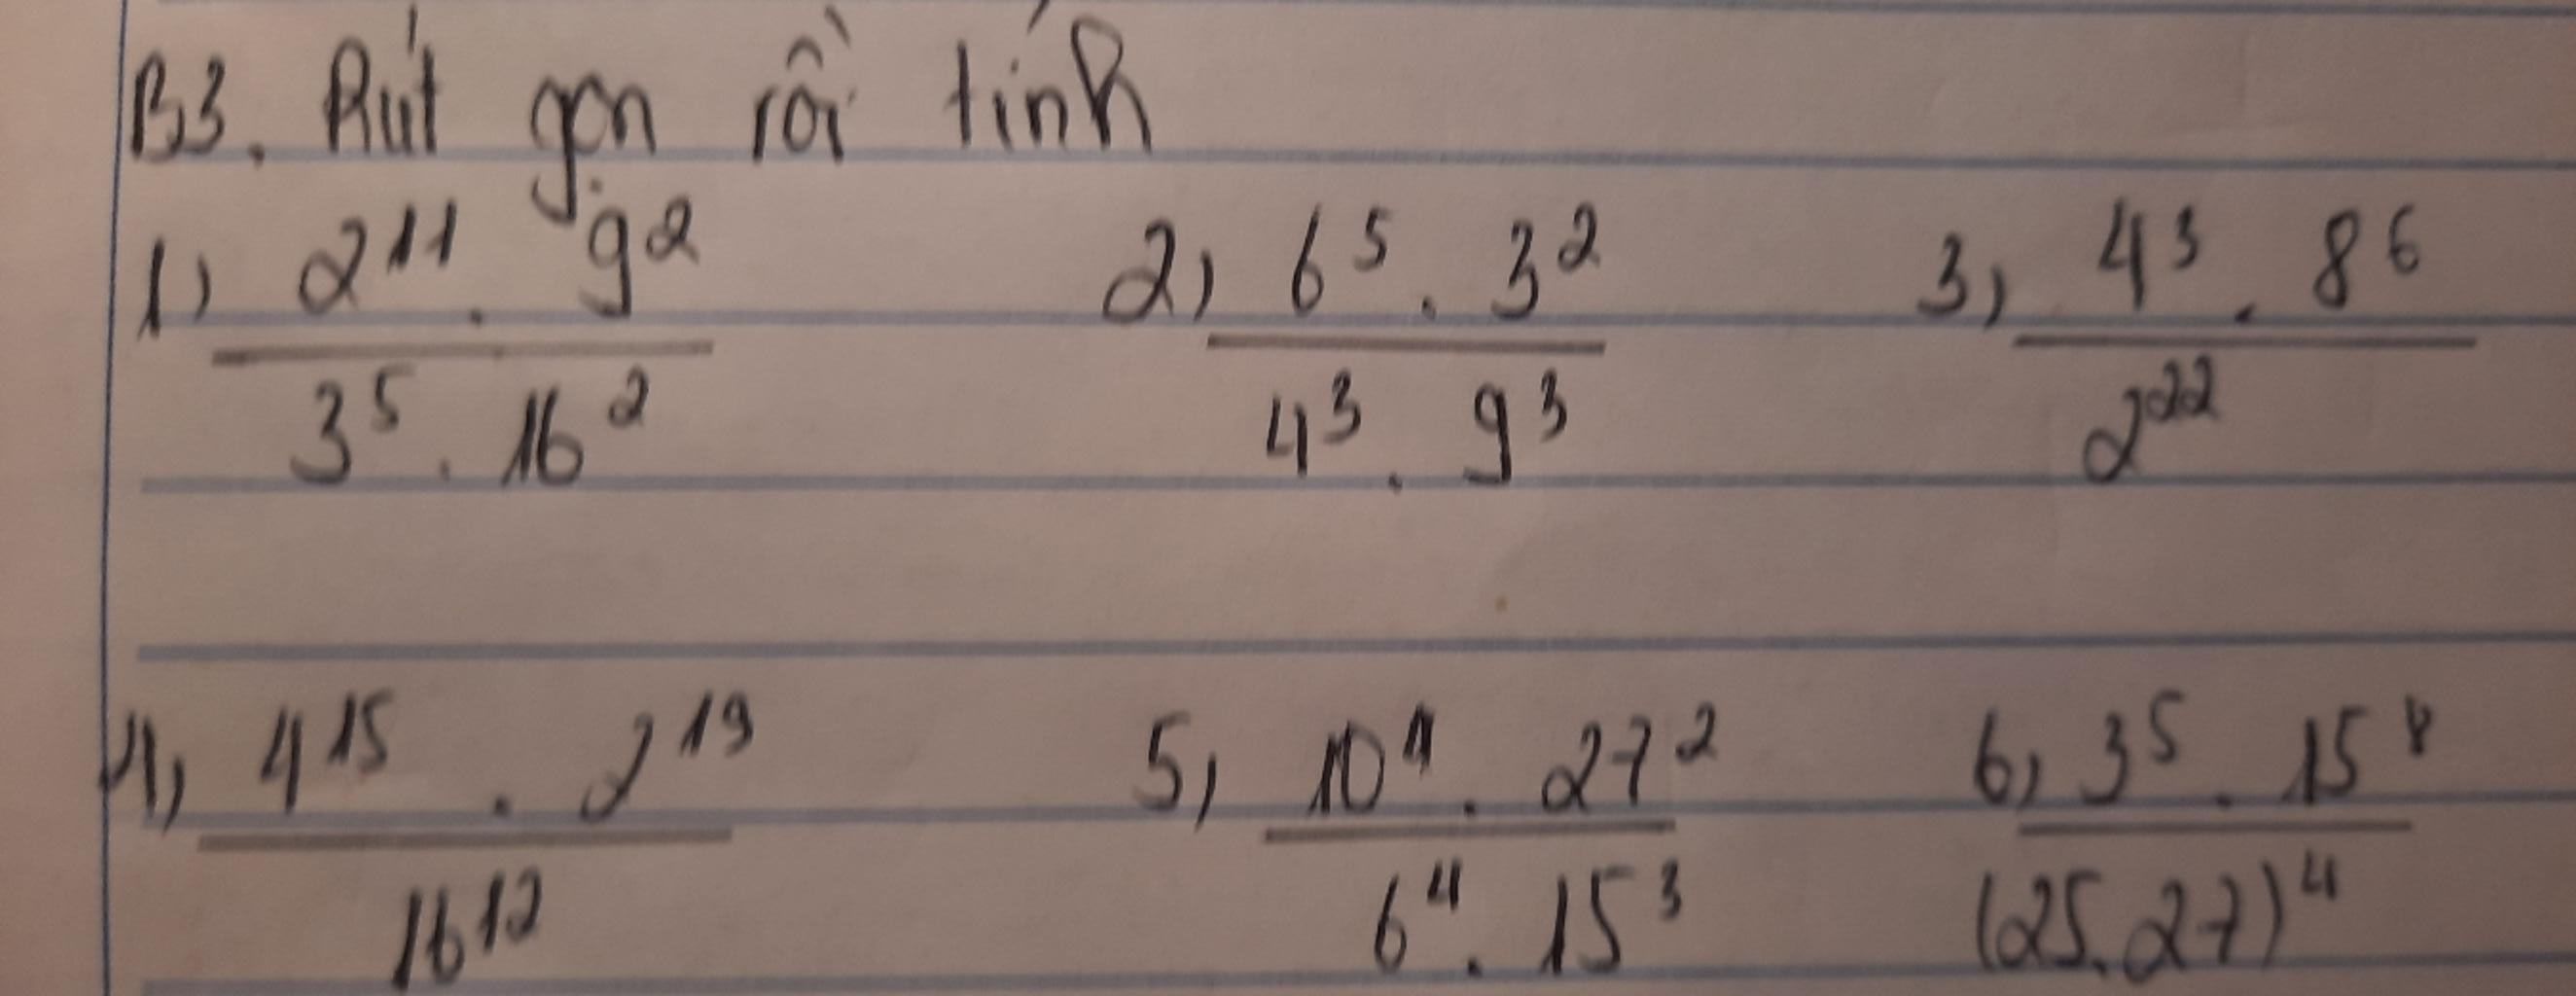 B3. Rút gọn rồi tính
1) \frac{2^{11} . 9^2}{3^5 . 16^2} 2) \frac{6^5 . 3^2}{4^3 . 9^3} 3) \frac{4^3 . 8^6}{2^{22}}
4) \frac{4^{15} . 2^{19}}{16^{12}} 5) \frac{10^4 . 27^2}{6^4 . 15^3} 6) \frac{3^5 . 15^8}{(25.27)^4}